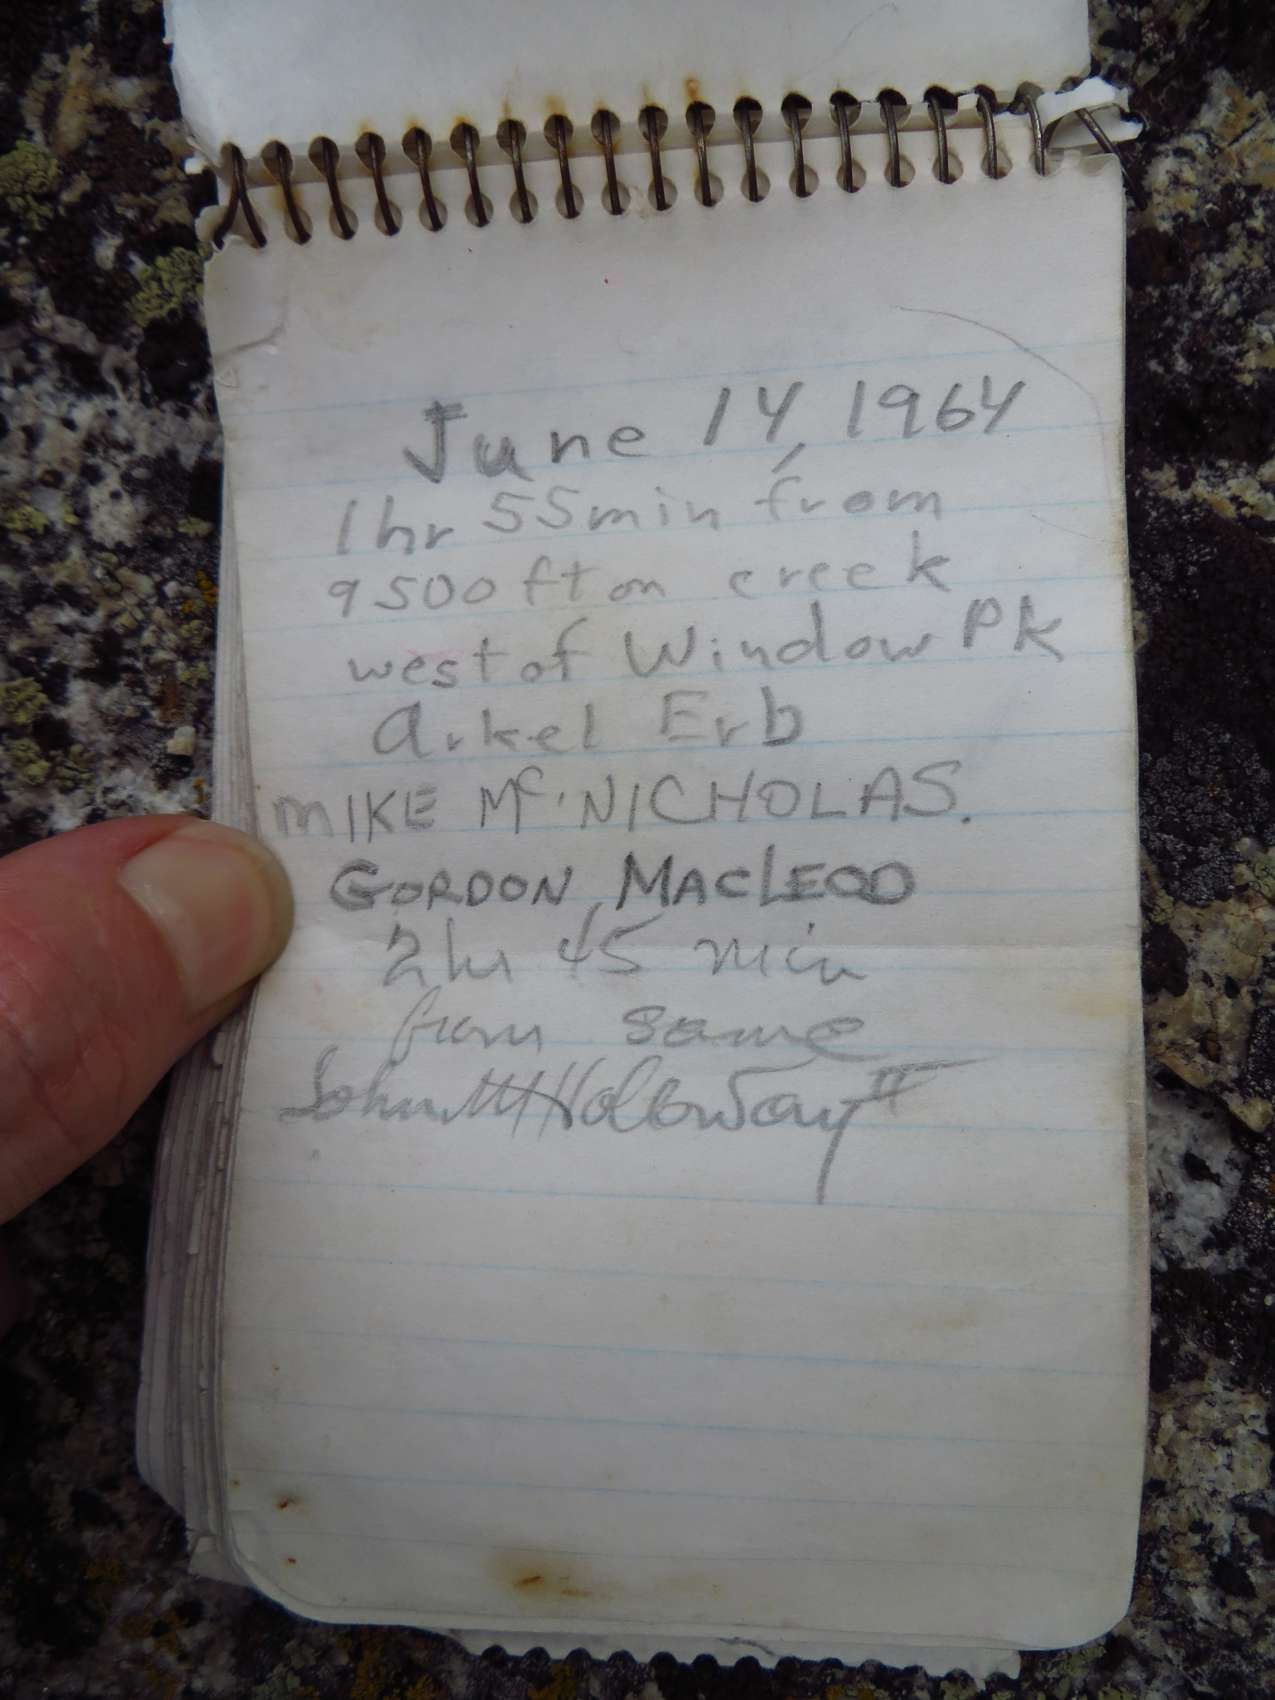 June 14, 1964
1hr 55min from
9500ft on creek
west of Window Pk
Arkel Erb
MIKE McNICHOLAS.
GORDON MACLEOD
2hr 45 min
from same
John M Holloway II